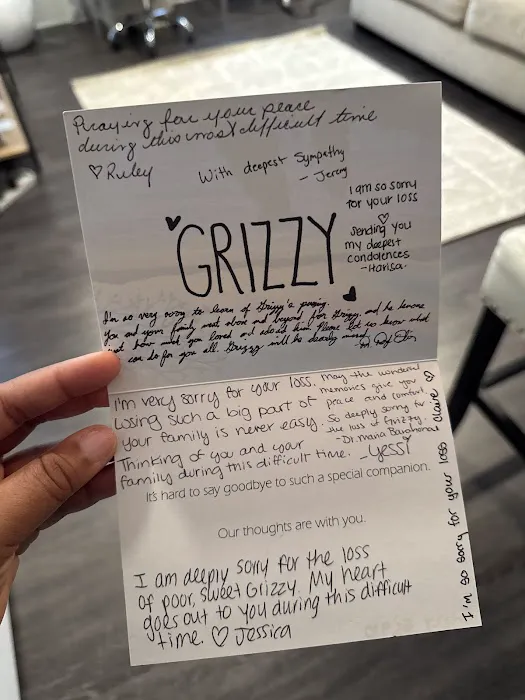 Praying for your peace
during this most difficult time
♡ Ruley
With deepest sympathy
- Jeremy
I am so sorry
for your loss
♡
sending you
my deepest
condolences
-Harisa.
GRIZZY
I'm so very sorry to learn of Grizzy's passing.
You and your family went above and beyond for Grizzy, and he knows
just how much you loved and adored him. Please let us know what
we can do for you all. Grizzy will be dearly missed.
I'm very sorry for your loss.
Losing such a big part of
your family is never easy.
Thinking of you and your
family during this difficult time. -Yessi
May the wonderful
memories give you
peace and comfort
So deeply sorry for
the loss of Grizzy
- Dr. Maria Barahona
It's hard to say goodbye to such a special companion.
Our thoughts are with you.
I am deeply sorry for the loss
of poor, sweet Grizzy. My heart
goes out to you during this difficult
time. ♡ Jessica
I'm so sorry for your loss Claire ♡